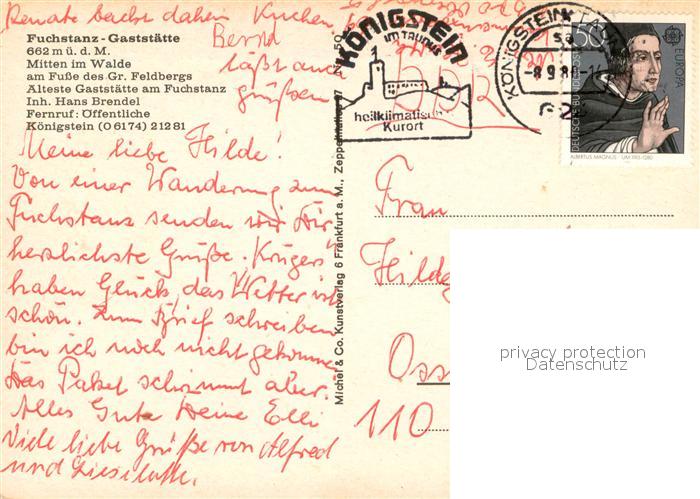 Renate backt daheim Kuchen,
Bernd
läßt auch
grüßen
Fuchstanz - Gaststätte
662 m ü. d. M.
Mitten im Walde
am Fuße des Gr. Feldbergs
Älteste Gaststätte am Fuchstanz
Inh. Hans Brendel
Fernruf: Öffentliche
Königstein (0 61 74) 2 12 81
Meine liebe Hilde!
Von einer Wanderung zum
Fuchstanz senden wir Dir
herzlichste Grüße. Krügers
haben Glück, das Wetter ist
schön. Zum Brief schreiben
bin ich noch nicht gekommen
Das Paket schwimmt aber.
Alles Gute Deine Elli
Viele liebe Grüße von Alfred
und Lieselotte.
Michel & Co. Kunstverlag 6 Frankfurt a. M., Zeppelinallee
KÖNIGSTEIN
IM TAUNUS
heilklimatischer
Kurort
KÖNIGSTEIN, TAUNUS
50
DEUTSCHE BUNDESPOST
EUROPA
ALBERTUS MAGNUS · UM 1193-1280
Frau
110
privacy protection
Datenschutz